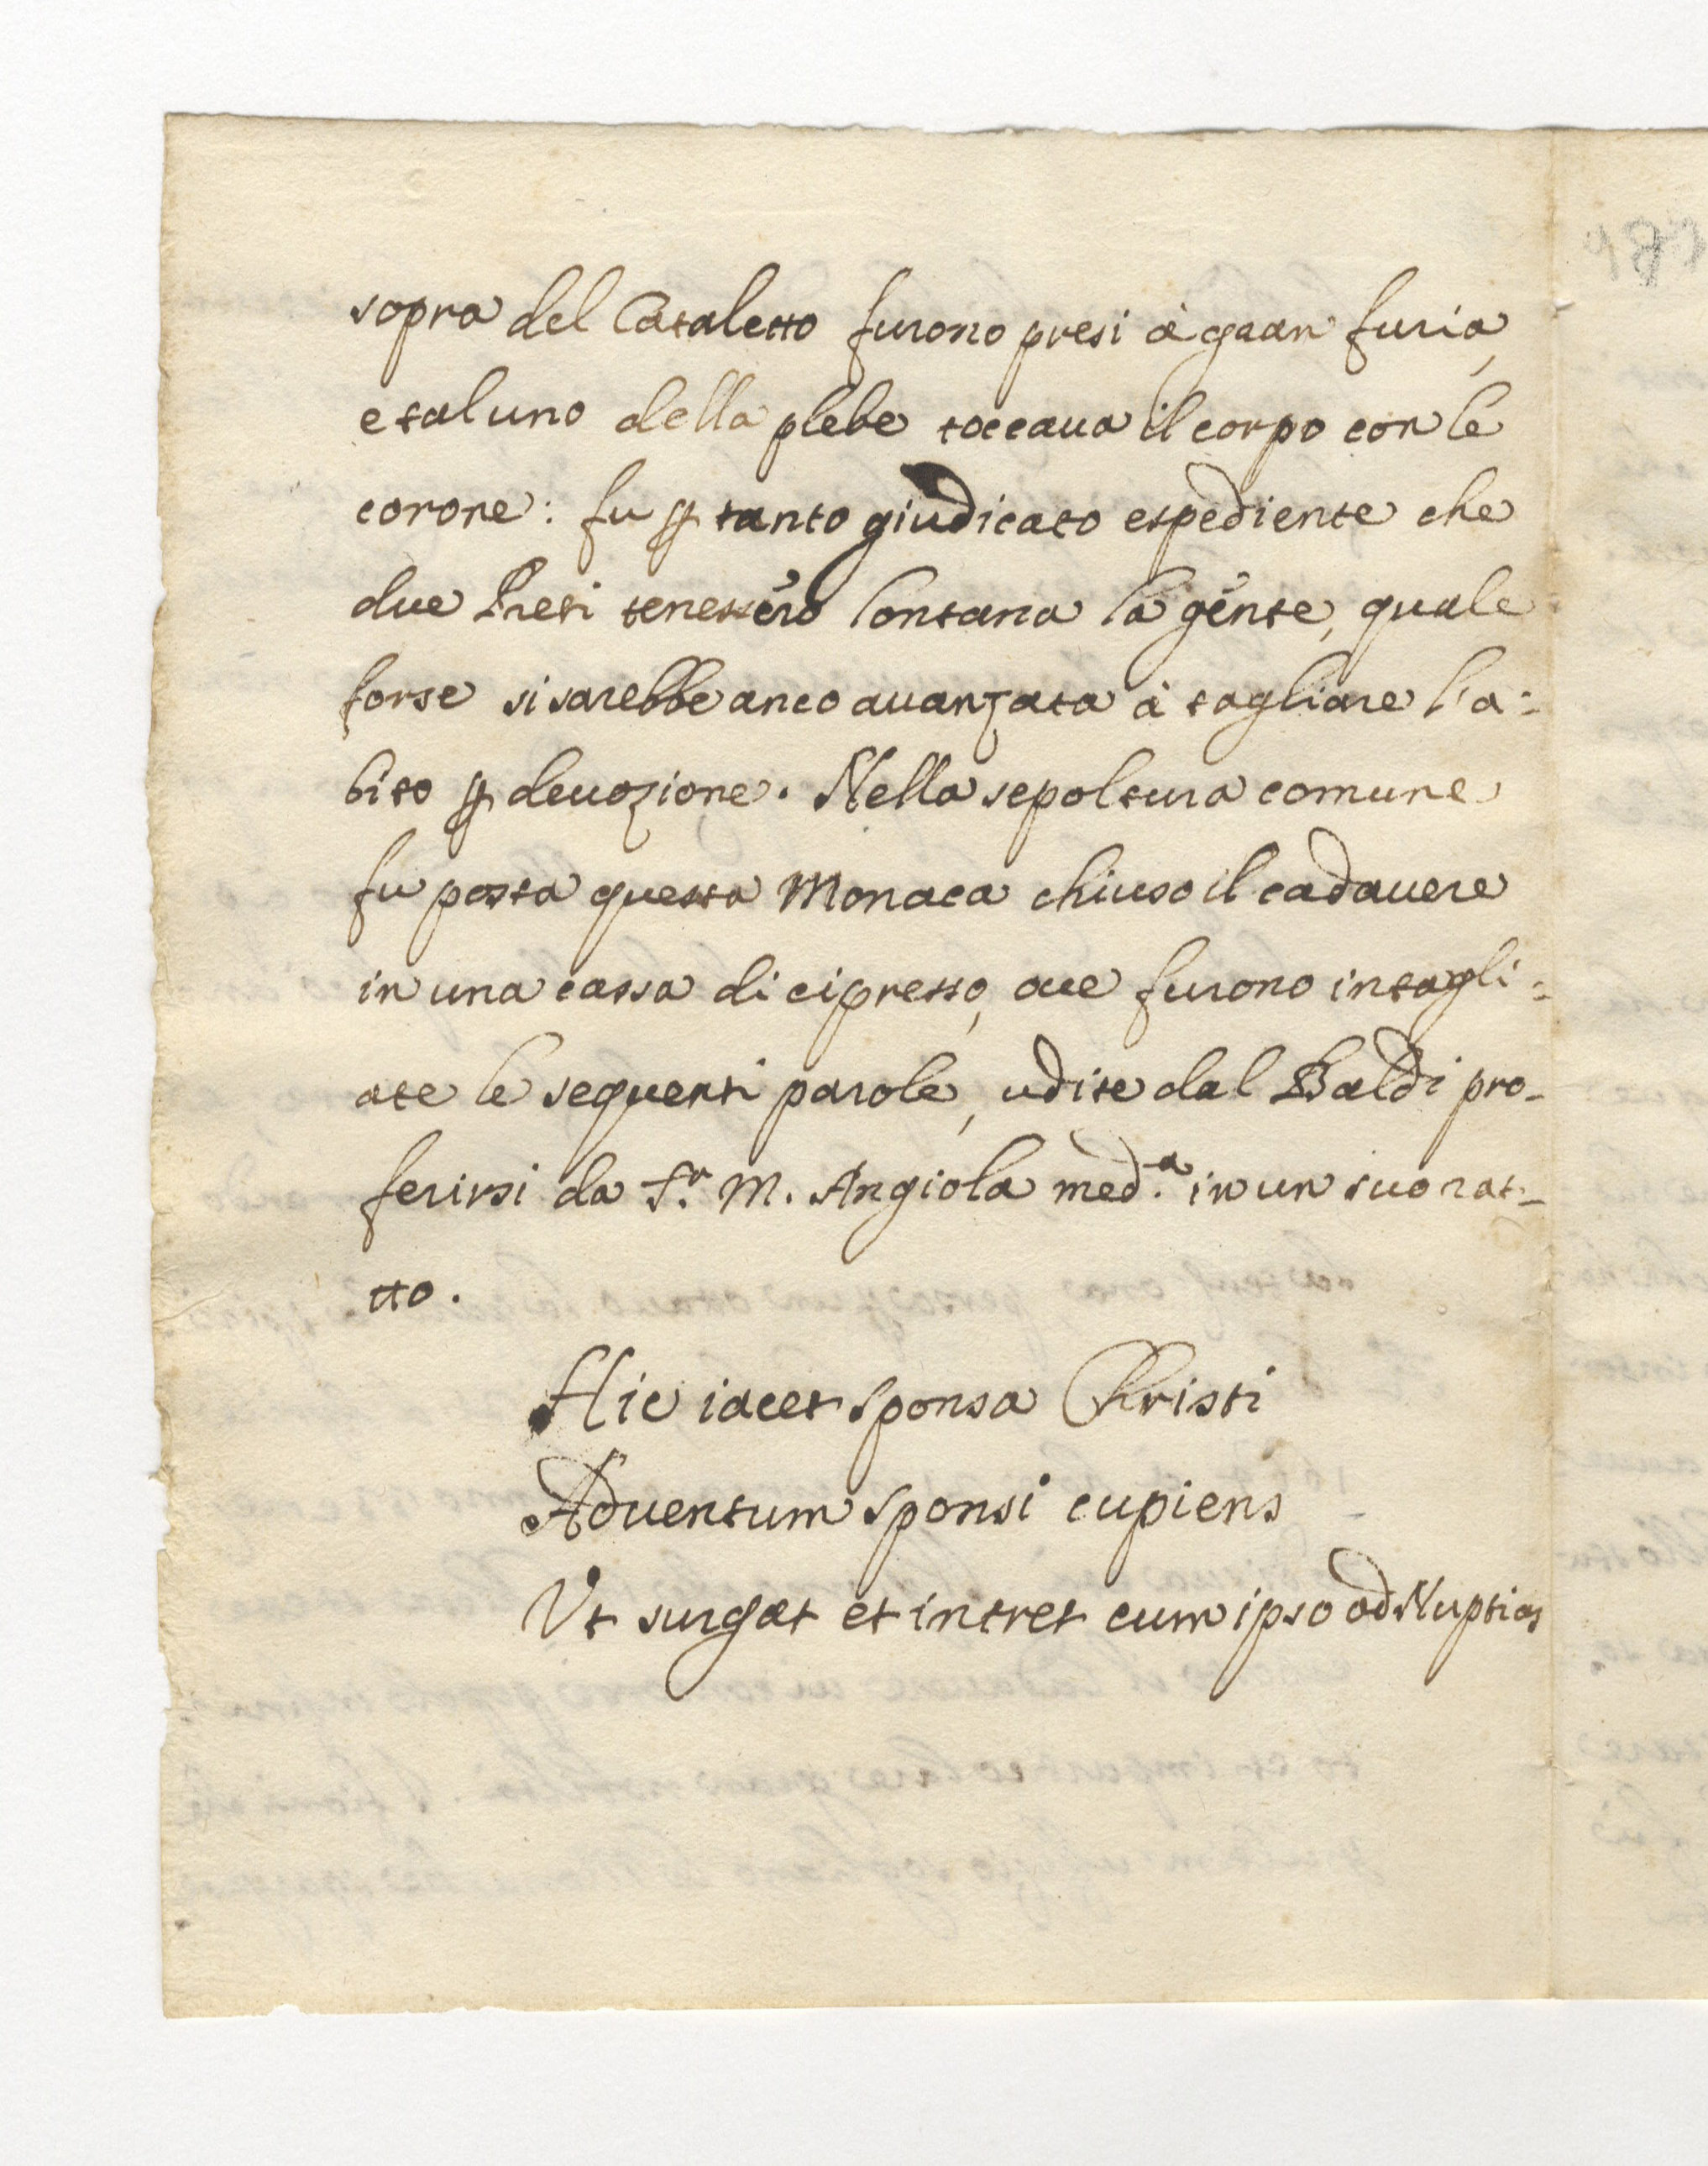 sopra del Cataletto furono presi à gran furia,
e taluno della plebe toccaua il corpo con le
corone: fu ꝑ tanto giudicato espediente che
due Preti tenessero lontana la gente, quale
forse si sarebbe anco auanzata à tagliare l'a=
bito ꝑ deuozione. Nella sepoltura comune
fu posta questa Monaca chiuso il cadauere
in una cassa di cipresso, oue furono intagli=
ate le seguenti parole, udite dal Baldi pro-
ferirsi da S.r M. Angiola med.a in un suo rat-
tto.
Hic iacet sponsa Christi
Aduentum sponsi cupiens
Vt surgat et intret cum ipso ad Nuptias